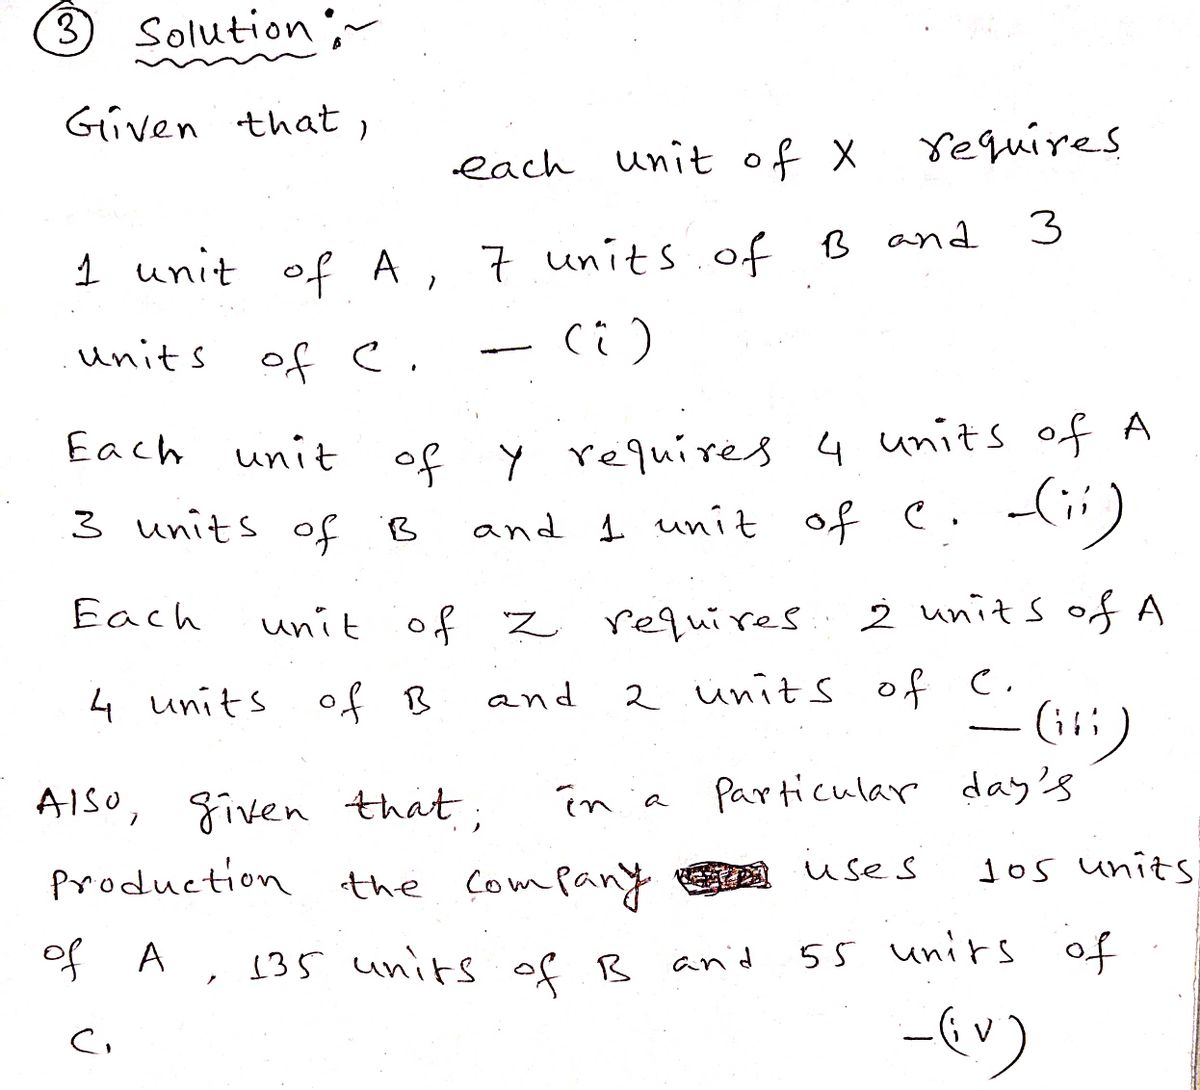 ③ Solution :~
Given that,
each unit of X requires
1 unit of A, 7 units of B and 3
units of C. — (i)
Each unit of y requires 4 units of A
3 units of B and 1 unit of C. -(ii)
Each unit of Z requires 2 units of A
4 units of B and 2 units of C.
— (iii)
Also, given that, in a Particular day's
Production the Company uses 105 units
of A, 135 units of B and 55 units of
C. -(iv)